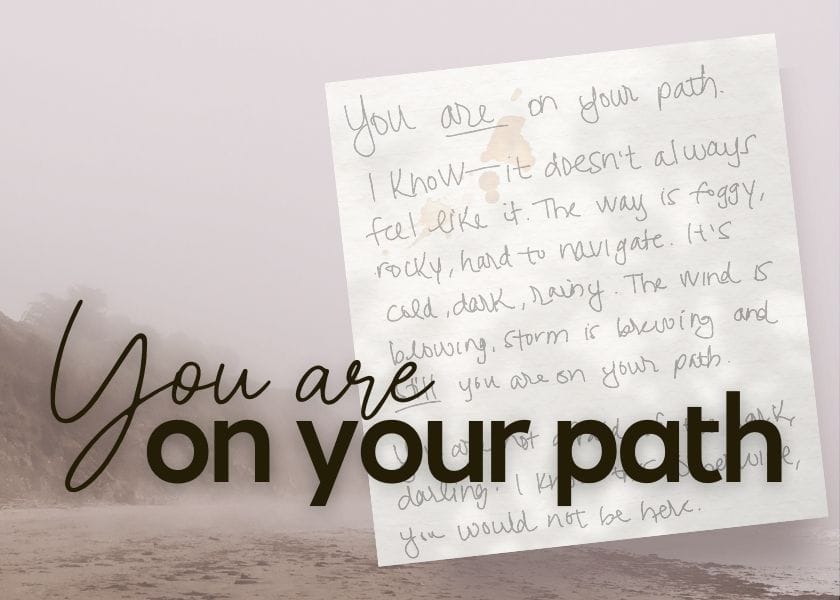 You are on your path.
I know—it doesn't always
feel like it. The way is foggy,
rocky, hard to navigate. It's
cold, dark, rainy. The wind is
blowing, storm is brewing and
still you are on your path.
You are not afraid of the dark,
darling. I know this. Otherwise,
you would not be here.
You are
on your path